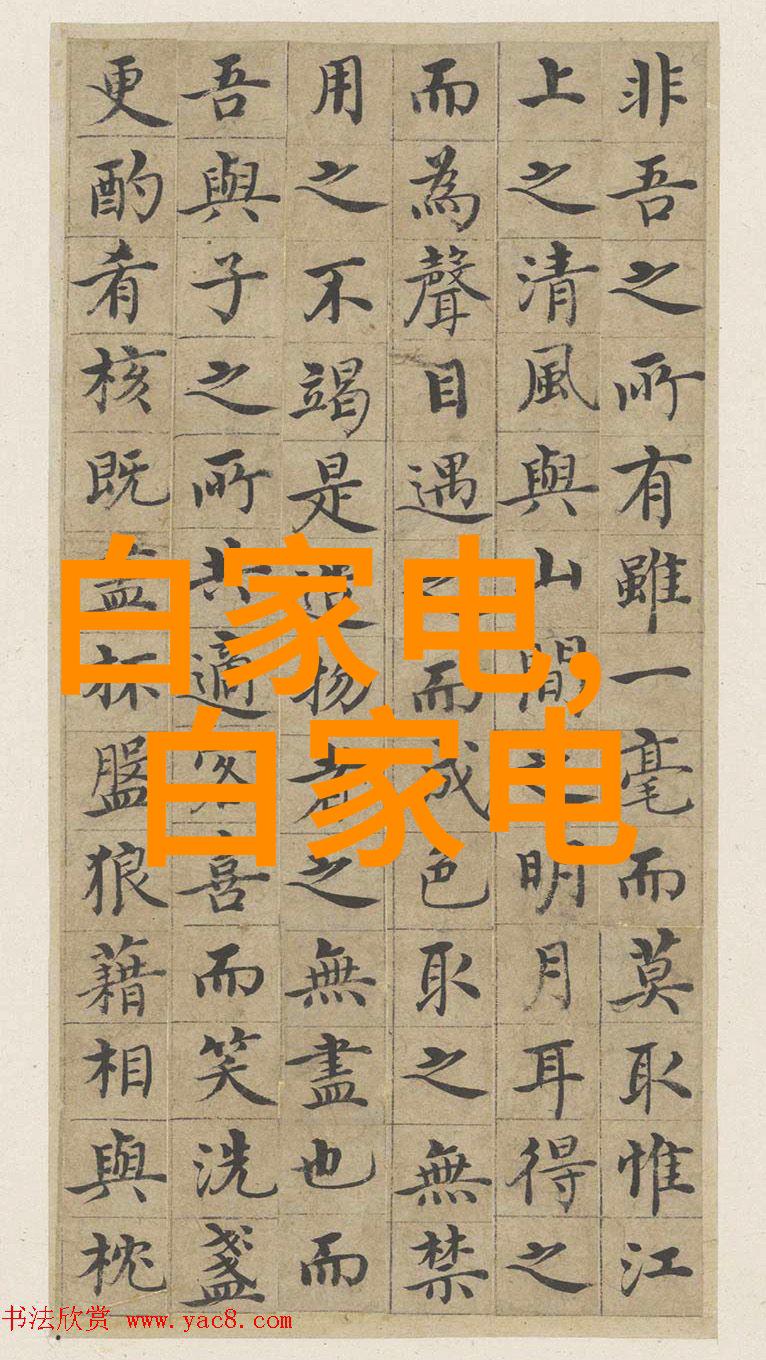 非吾之所有雖一毫而莫取惟江
上之清風與山間之明月耳得之
而為聲目遇之而成色取之無禁
用之不竭是造物者之無盡也而
吾與子之所共適客喜而笑洗盞
更酌肴核既盡杯盤狼藉相與枕
白家电,
白家电
书法欣赏 www.yac8.com